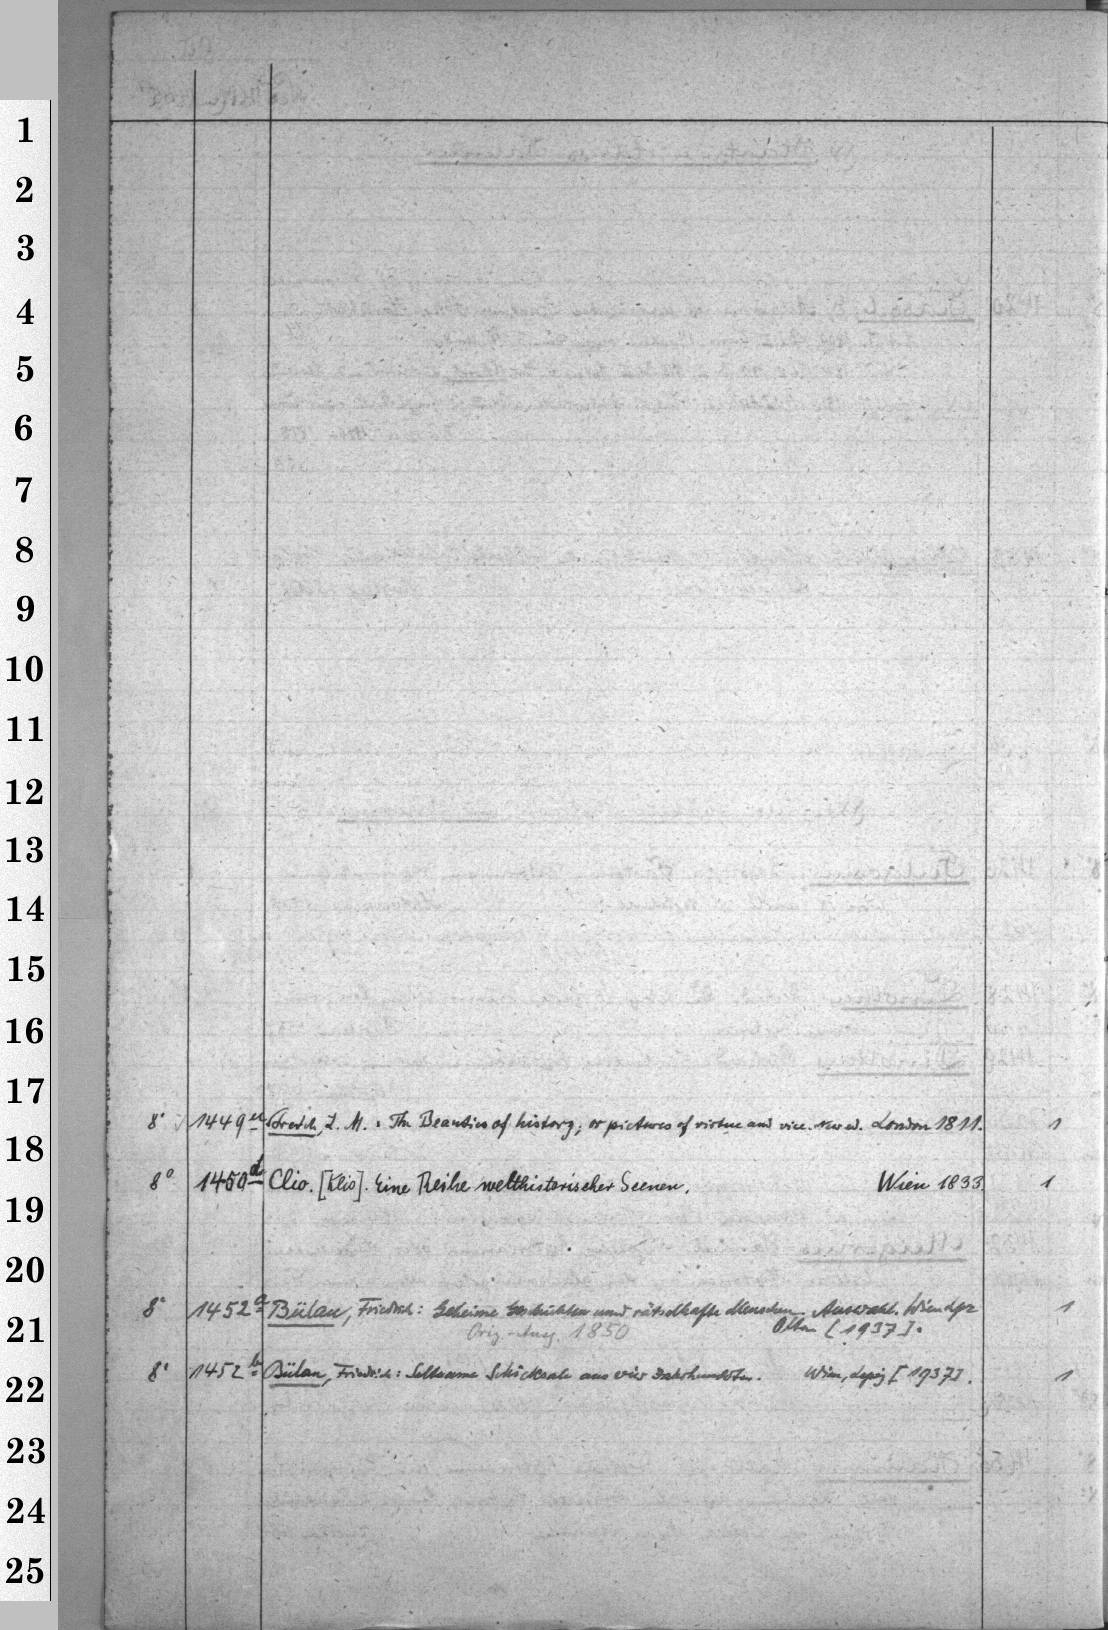 1
2
3
4
5
6
7
8
9
10
11
12
13
14
15
16
17
8° 1449 L. M.: The Beauties of history; or pictures of virtue and vice. New ed. London 1811. 1
18
8° 1450 d Clio. [Klio]. Eine Reihe welthistorischer Scenen. Wien 1833. 1
19
20
8° 1452 a Bülau, Friedrich: Geheime Geschichten und rätselhafte Menschen. Auswahl. Wien Lpz 1
21
Orig.-Ausg. 1850 Olten [1937].
8° 1452 b Bülau, Friedrich: Seltsame Schicksale aus vier Jahrhunderten. Wien, Leipzig [1937]. 1
22
23
24
25